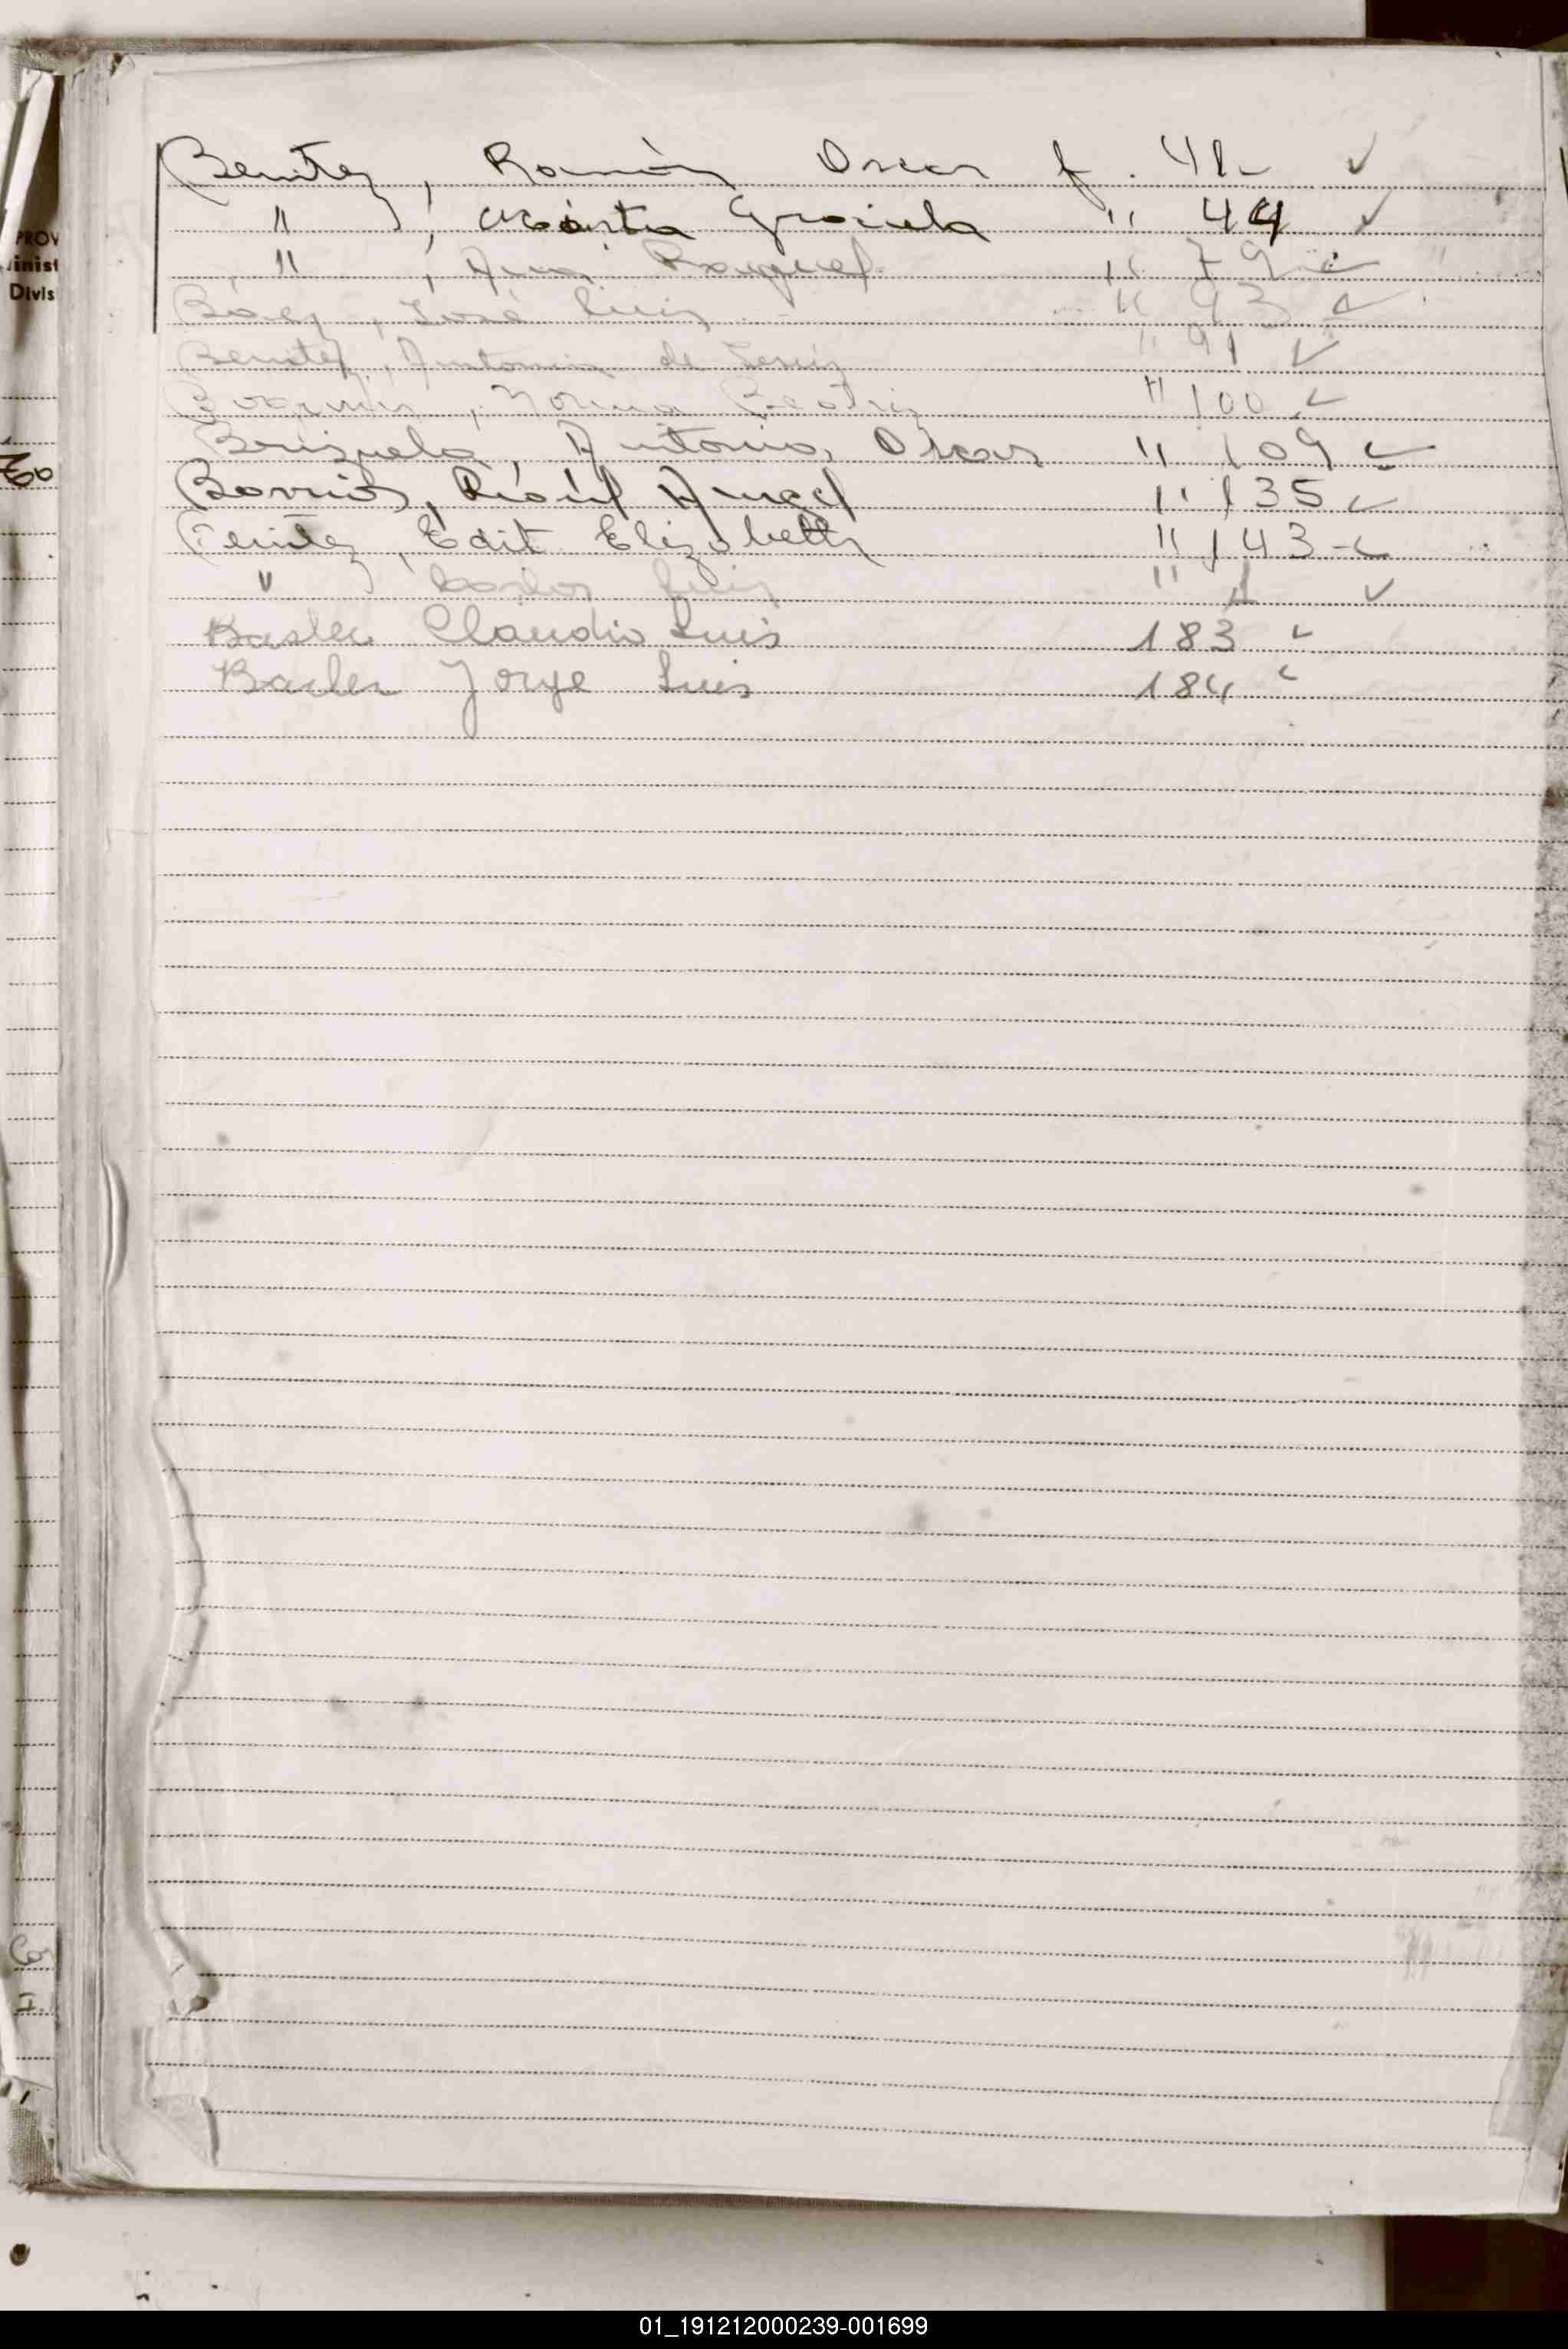 PROV
inist
Divis
Benitez, Ramón Oscar f. 41- ✓
" , Marta Graciela " 44 ✓
" , Ana Raquel " 79 ✓
Baez, José Luis " 93 ✓
Benitez, Antonia de Jesús " 91 ✓
Norma Beatriz " 100 ✓
Brizuela, Antonio, Oscar " 109 ✓
Barrios, Raúl Angel " 135 ✓
Benitez, Edit Elizabeth " 143 - ✓
" Carlos Luis " ✓
Claudio Luis 183 ✓
Jorge Luis 184 ✓
01_191212000239-001699